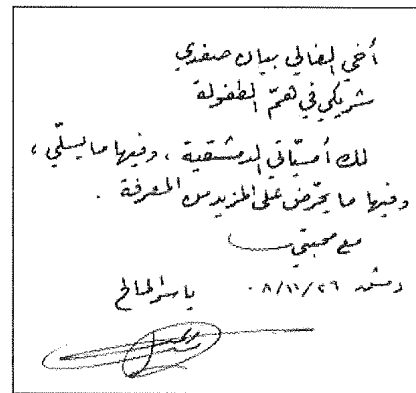 أخي الغالي بيان صفدي
شريكي في همّ الطفولة
لك أمسيّاتي الدمشقية ، وفيها ما يسلّي ،
وفيها ما يحرّض على المزيد من المعرفة .
مع محبتي
دمشق ٠٨/١١/٢٦ ياسر المالح